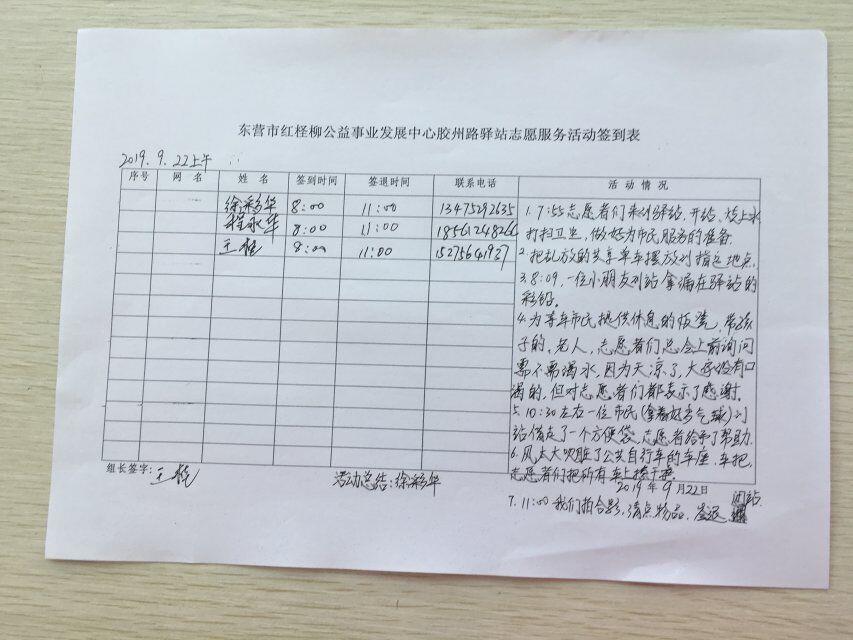 东营市红柽柳公益事业发展中心胶州路驿站志愿服务活动签到表
2019.9.22上午
序号 网名 姓名 签到时间 签退时间 联系电话 活动情况
徐彩华 8:00 11:00 13475292635
程永华 8:00 11:00 18561248266
王桂 8:00 11:00 15275641927
1.7:55志愿者们来到驿站.开站.烧上水
打扫卫生,做好为市民服务的准备.
2.把乱放的共享单车摆放到指定地点.
3.8:09,一位小朋友到站拿漏在驿站的
彩铅.
4.为等车市民提供休息的板凳,带孩
子的、老人,志愿者们总会上前询问
需不需喝水,因为天凉了,大家没有口
渴的,但对志愿者们都表示了感谢.
5.10:30左右一位市民(拿着好多气球)到
站借走了一个方便袋.志愿者给予了帮助.
6.风太大吹脏了公共自行车的车座、车把,
志愿者们把所有车上擦干净.
组长签字:王桂 活动总结:徐彩华 2019年9月22日
7.11:00我们拍合影,清点物品、签退 闭站.